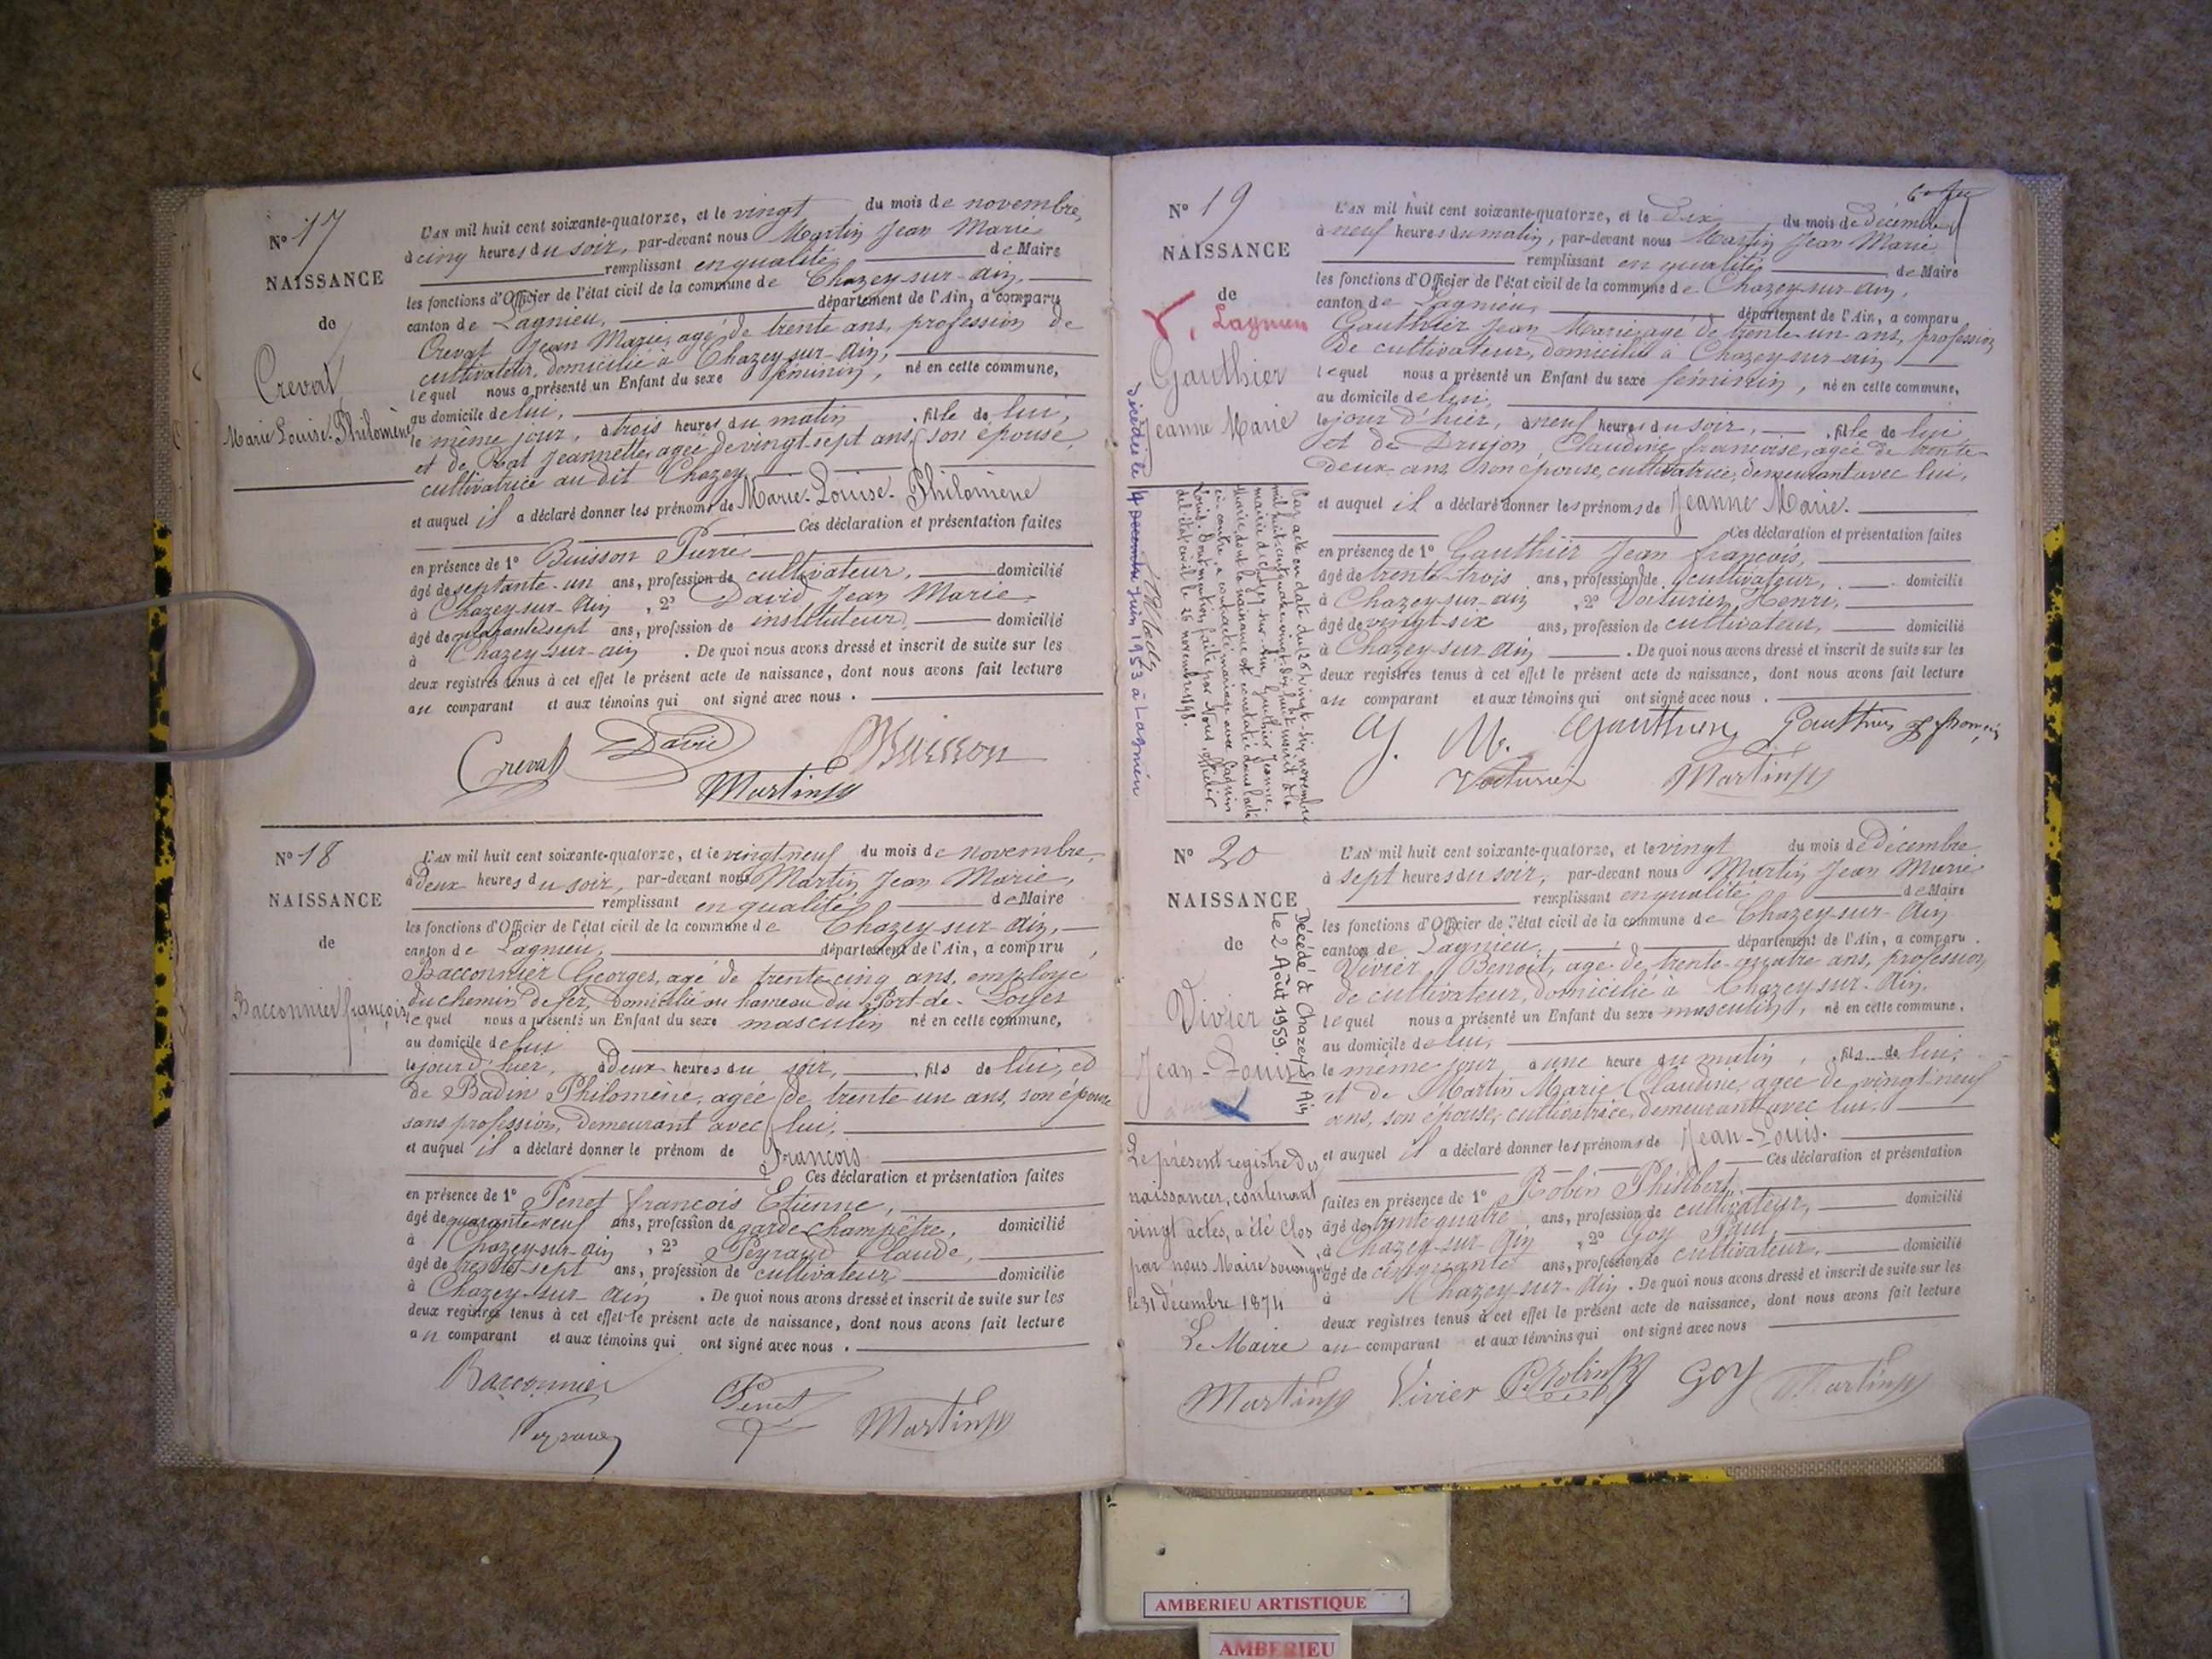 N° 17
NAISSANCE
de
Crevat
Marie Louise Philomène
L'AN mil huit cent soixante-quatorze, et le vingt du mois de novembre,
à cinq heures du soir, par-devant nous Martin Jean Marie
remplissant en qualité de Maire
les fonctions d'Officier de l'état civil de la commune de Chazey-sur-Ain,
canton de Lagnieu, département de l'Ain, a comparu
Crevat Jean Marie, agé de trente ans, profession de
cultivateur, domicilié à Chazey-sur-Ain,
lequel nous a présenté un Enfant du sexe féminin, né en cette commune,
au domicile de lui,
le même jour, à trois heures du matin, fille de lui,
et de Rat Jeannette, agée de vingt sept ans, son épouse,
cultivatrice au dit Chazey
et auquel il a déclaré donner les prénoms de Marie-Louise-Philomène
Ces déclaration et présentation faites
en présence de 1° Buisson Pierre
âgé de septante-un ans, profession de cultivateur, domicilié
à Chazey-sur-Ain, 2° David Jean Marie
âgé de quarante sept ans, profession de instituteur, domicilié
à Chazey-sur-ain. De quoi nous avons dressé et inscrit de suite sur les
deux registres tenus à cet effet le présent acte de naissance, dont nous avons fait lecture
au comparant et aux témoins qui ont signé avec nous.
Crevat David Buisson
Martin
N° 18
NAISSANCE
de
Bacconnier françois
L'AN mil huit cent soixante-quatorze, et le vingt neuf du mois de novembre,
à deux heures du soir, par-devant nous Martin Jean Marie,
remplissant en qualité de Maire
les fonctions d'Officier de l'état civil de la commune de Chazey-sur-Ain,
canton de Lagnieu, département de l'Ain, a comparu
Bacconnier Georges, agé de trente cinq ans, employé
du chemin de fer, domicilié au hameau du Port de Loyes
lequel nous a présenté un Enfant du sexe masculin né en cette commune,
au domicile de lui
le jour d'hier, à deux heures du soir, fils de lui, et
de Badin Philomène, agée de trente un ans, son épouse
sans profession, demeurant avec lui,
et auquel il a déclaré donner le prénom de françois
Ces déclaration et présentation faites
en présence de 1° Penet françois Etienne,
âgé de quarante neuf ans, profession de garde champêtre, domicilié
à Chazey-sur-Ain, 2° Peyraud Claude,
âgé de trente sept ans, profession de cultivateur domicilié
à Chazey-sur-Ain. De quoi nous avons dressé et inscrit de suite sur les
deux registres tenus à cet effet le présent acte de naissance, dont nous avons fait lecture
au comparant et aux témoins qui ont signé avec nous.
Bacconnier Penet Martin
N° 19
NAISSANCE
de
Lagnieu
Gauthier
Jeanne Marie
L'AN mil huit cent soixante-quatorze, et le dix du mois de décembre
à neuf heures du matin, par-devant nous Martin Jean Marie
remplissant en qualité de Maire
les fonctions d'Officier de l'état civil de la commune de Chazey-sur-Ain,
canton de Lagnieu, département de l'Ain, a comparu
Gauthier Jean Marie, agé de trente-un ans, profession
de cultivateur, domicilié à Chazey-sur-ain
lequel nous a présenté un Enfant du sexe féminin, né en cette commune,
au domicile de lui,
le jour d'hier, à neuf heures du soir, fille de lui
et de Drujon Claudine françoise, agée de trente-
deux ans, son épouse, cultivatrice, demeurant avec lui,
et auquel il a déclaré donner les prénoms de Jeanne Marie.
Ces déclaration et présentation faites
en présence de 1° Gauthier Jean françois,
âgé de trente-trois ans, profession de cultivateur, domicilié
à Chazey-sur-ain, 2° Voiturier Henri,
âgé de vingt-six ans, profession de cultivateur, domicilié
à Chazey-sur-Ain. De quoi nous avons dressé et inscrit de suite sur les
deux registres tenus à cet effet le présent acte de naissance, dont nous avons fait lecture
au comparant et aux témoins qui ont signé avec nous.
J. M. Gauthier Gauthier J françois
Voiturier Martin
Décédée le 14 Juin 1953 à Lagnieu
Par acte en date du (26) vingt-six novembre
mil huit cent quatre vingt dix huit inscrit à la
mairie de Chazey-sur-Ain, Gauthier Jeanne
Marie, dont la naissance est constatée dans l'acte
ci-contre, a contracté mariage avec
Louis. Dont mention faite par Nous, officier
de l'état civil le 26 novembre 1898.
N° 20
NAISSANCE
de
Vivier
Jean-Louis
Décédé à Chazey S/ Ain
le 2 Août 1959.
L'AN mil huit cent soixante-quatorze, et le vingt du mois de décembre
à sept heures du soir, par-devant nous Martin Jean Marie
remplissant en qualité de Maire
les fonctions d'Officier de l'état civil de la commune de Chazey-sur-Ain
canton de Lagnieu, département de l'Ain, a comparu
Vivier Benoit, agé de trente-quatre ans, profession
de cultivateur, domicilié à Chazey-sur-Ain,
lequel nous a présenté un Enfant du sexe masculin, né en cette commune,
au domicile de lui,
le même jour à une heure du matin, fils de lui,
et de Martin Marie Claudine, agée de vingt neuf
ans, son épouse, cultivatrice, demeurant avec lui,
et auquel il a déclaré donner les prénoms de Jean-Louis.
Ces déclaration et présentation
faites en présence de 1° Robin Philibert
âgé de trente quatre ans, profession de cultivateur, domicilié
à Chazey-sur-Ain, 2° Goy Paul,
âgé de cinquante ans, profession de cultivateur, domicilié
à Chazey-sur-Ain. De quoi nous avons dressé et inscrit de suite sur les
deux registres tenus à cet effet le présent acte de naissance, dont nous avons fait lecture
au comparant et aux témoins qui ont signé avec nous
Le présent registre des
naissances, contenant
vingt actes, a été clos
par nous Maire soussigné
le 31 décembre 1874
Le Maire
Martin Vivier P. Robin Goy Martin
AMBERIEU ARTISTIQUE
AMBERIEU